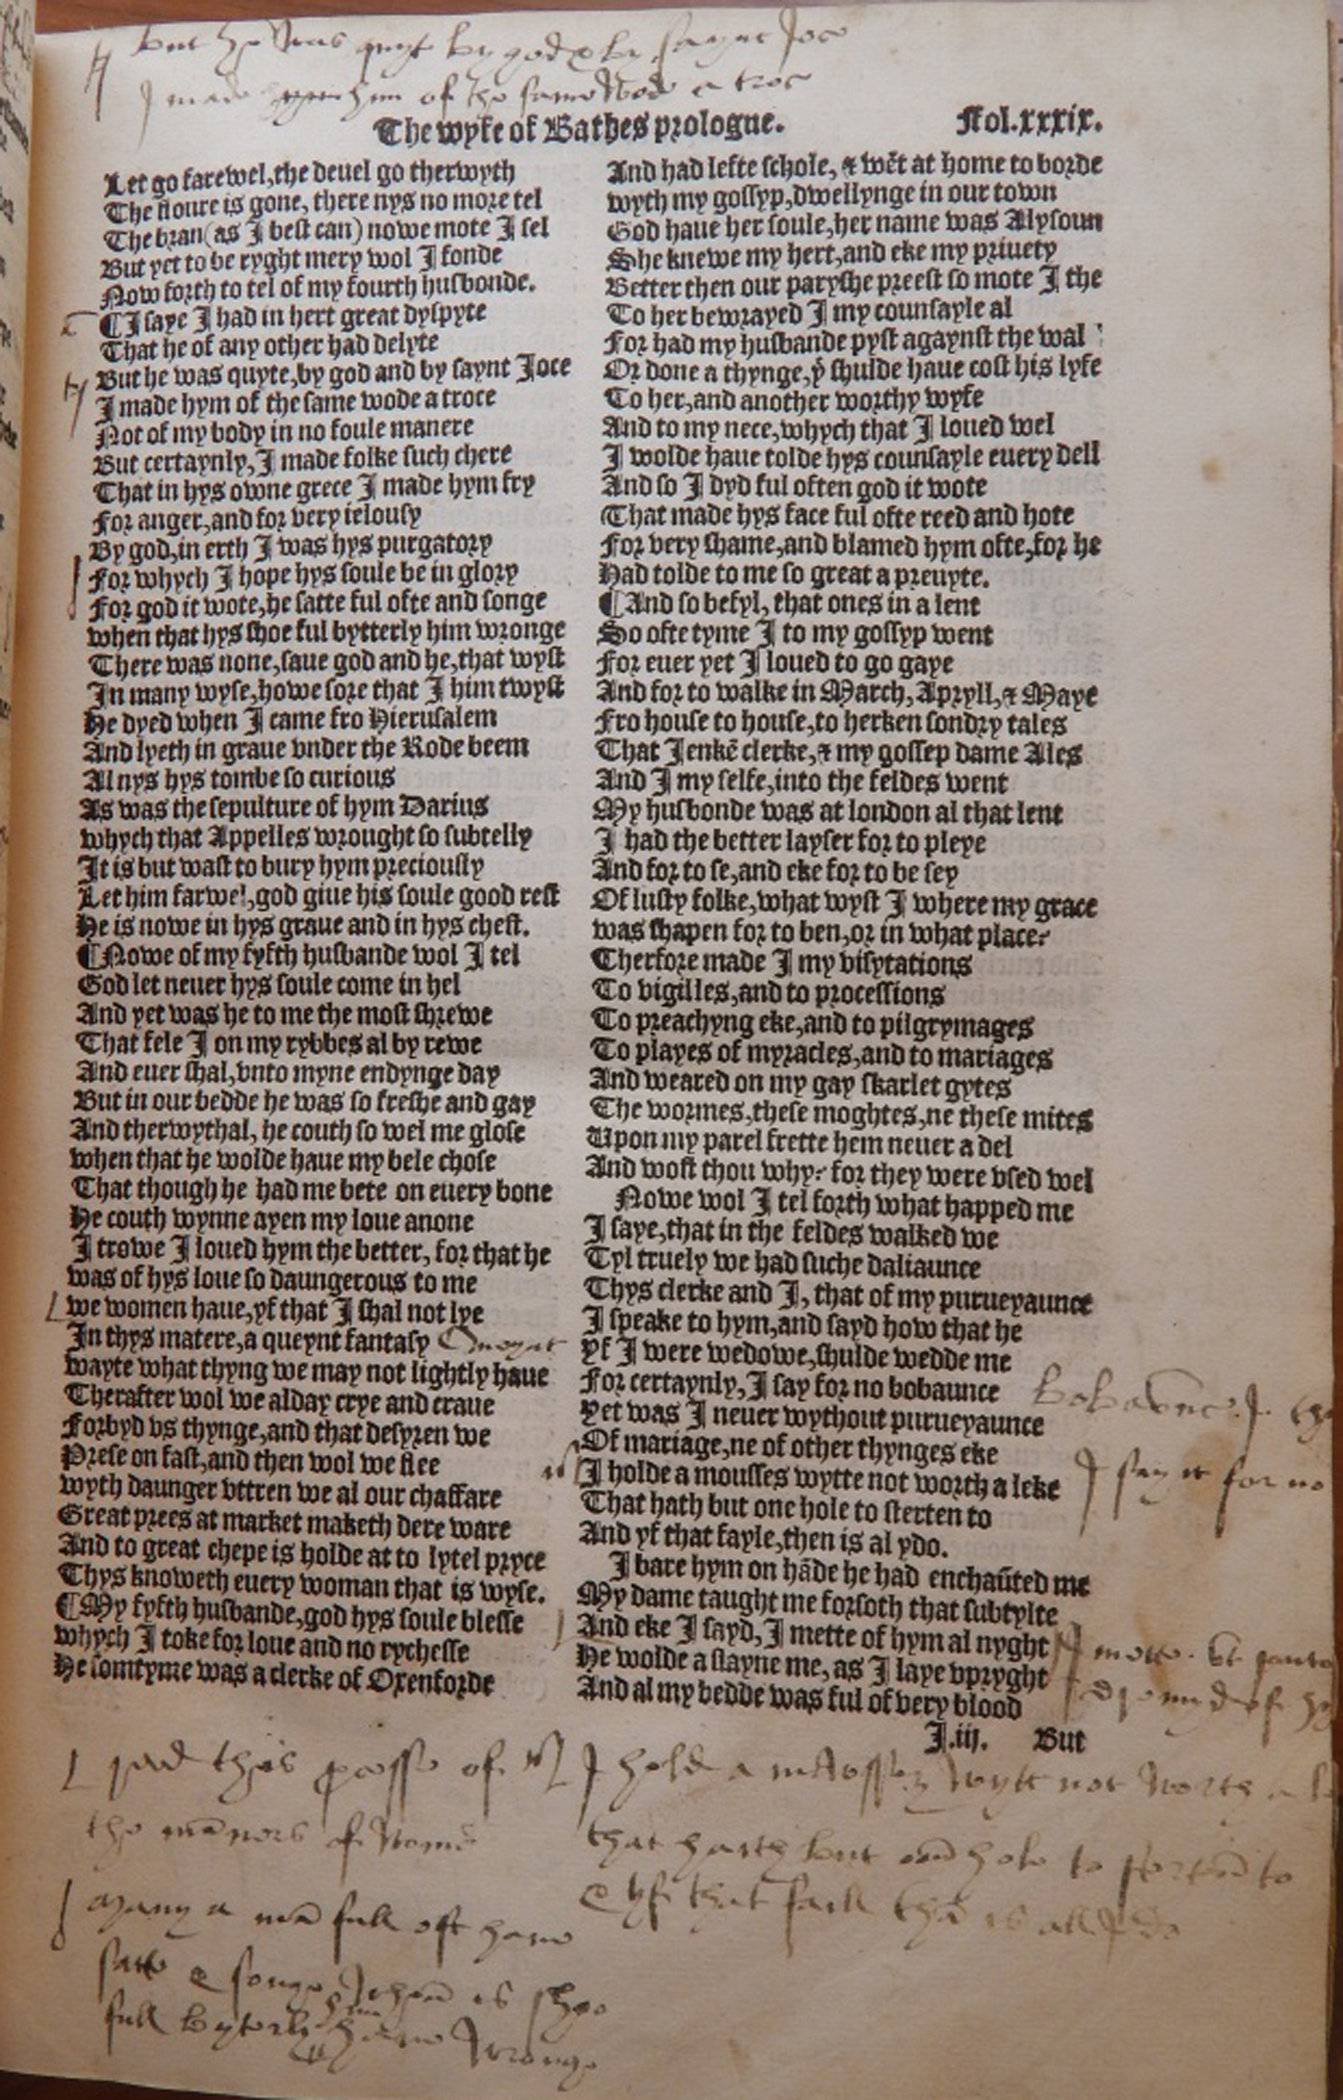 but he was quyt by god & by saynt Joce
I made hym of the same wode a troce
The wyfe of Bathes prologue. Fol.xxxix.
Let go farewel,the deuel go therwyth
The floure is gone, there nys no more tel
The bran(as I best can) nowe mote I sel
But yet to be ryght mery wol I fonde
Now forth to tel of my fourth husbonde.
¶I saye I had in hert great dyspyte
That he of any other had delyte
But he was quyte,by god and by saynt Joce
I made hym of the same wode a troce
Not of my body in no foule manere
But certaynly,I made folke such chere
That in hys owne grece I made hym fry
For anger,and for very ielousy
By god,in erth I was hys purgatory
For whych I hope hys soule be in glory
For god it wote,he satte ful ofte and songe
when that hys shoe ful bytterly him wronge
There was none,saue god and he,that wyst
In many wyse,howe sore that I him twyst
He dyed when I came fro Hierusalem
And lyeth in graue vnder the Rode beem
Al nys hys tombe so curious
As was the sepulture of hym Darius
whych that Appelles wrought so subtelly
It is but wast to bury hym preciously
Let him farwel,god giue his soule good rest
He is nowe in hys graue and in hys chest.
¶Nowe of my fyfth husbande wol I tel
God let neuer hys soule come in hel
And yet was he to me the most shrewe
That fele I on my rybbes al by rewe
And euer shal,vnto myne endynge day
But in our bedde he was so freshe and gay
And therwythal, he couth so wel me glose
when that he wolde haue my bele chose
That though he had me bete on euery bone
He couth wynne ayen my loue anone
I trowe I loued hym the better, for that he
was of hys loue so daungerous to me
we women haue,yf that I shal not lye
In thys matere,a queynt fantasy
wayte what thyng we may not lightly haue
Therafter wol we alday crye and craue
Forbyd vs thynge,and that desyren we
Prese on fast,and then wol we flee
wyth daunger vttren we al our chaffare
Great prees at market maketh dere ware
And to great chepe is holde at to lytel pryce
Thys knoweth euery woman that is wyse.
¶My fyfth husbande,god hys soule blesse
whych I toke for loue and no rychesse
He somtyme was a clerke of Oxenforde
And had lefte schole, & wēt at home to borde
wyth my gossyp,dwellynge in our town
God haue her soule,her name was Alysoun
She knewe my hert,and eke my priuety
Better then our paryshe preest so mote I the
To her bewrayed I my counsayle al
For had my husbande pyst agaynst the wal
Or done a thynge,yͭ shulde haue cost his lyfe
To her,and another worthy wyfe
And to my nece,whych that I loued wel
I wolde haue tolde hys counsayle euery dell
And so I dyd ful often god it wote
That made hys face ful ofte reed and hote
For very shame,and blamed hym ofte,for he
Had tolde to me so great a preuyte.
¶And so befyl, that ones in a lent
So ofte tyme I to my gossyp went
For euer yet I loued to go gaye
And for to walke in March,Apryll,& Maye
Fro house to house,to herken sondry tales
That Jenkē clerke,& my gossep dame Ales
And I my selfe,into the feldes went
My husbonde was at london al that lent
I had the better layser for to pleye
And for to se,and eke for to be sey
Of lusty folke,what wyst I where my grace
was shapen for to ben,or in what place?
Therfore made I my visytations
To vigilles,and to processions
To preachyng eke,and to pilgrymages
To playes of myracles,and to mariages
And weared on my gay skarlet gytes
The wormes,these moghtes,ne these mites
Upon my parel frette hem neuer a del
And wost thou why? for they were vsed wel
Nowe wol I tel forth what happed me
I saye,that in the feldes walked we
Tyl truely we had suche daliaunce
Thys clerke and I, that of my purueyaunce
I speake to hym,and sayd how that he
Yf I were wedowe,shulde wedde me
For certaynly,I say for no bobaunce
Yet was I neuer wythout purueyaunce
Of mariage,ne of other thynges eke
I holde a mousses wytte not worth a leke
That hath but one hole to sterten to
And yf that fayle,then is al ydo.
I bare hym on hāde he had enchaūted me
My dame taught me forsoth that subtylte
And eke I sayd, I mette of hym al nyght
He wolde a slayne me, as I laye vpryght
And al my bedde was ful of very blood
J.iij. But
I say it for no
I mette
rad this passe of
the mānors of womē
many a mā full oft haue
satte & songe whan is shoo
full byterly hym wronge
I hold a mousses wytt not worth a
that hath but oon hole to sterten to
& yf that faill thā is all ydo